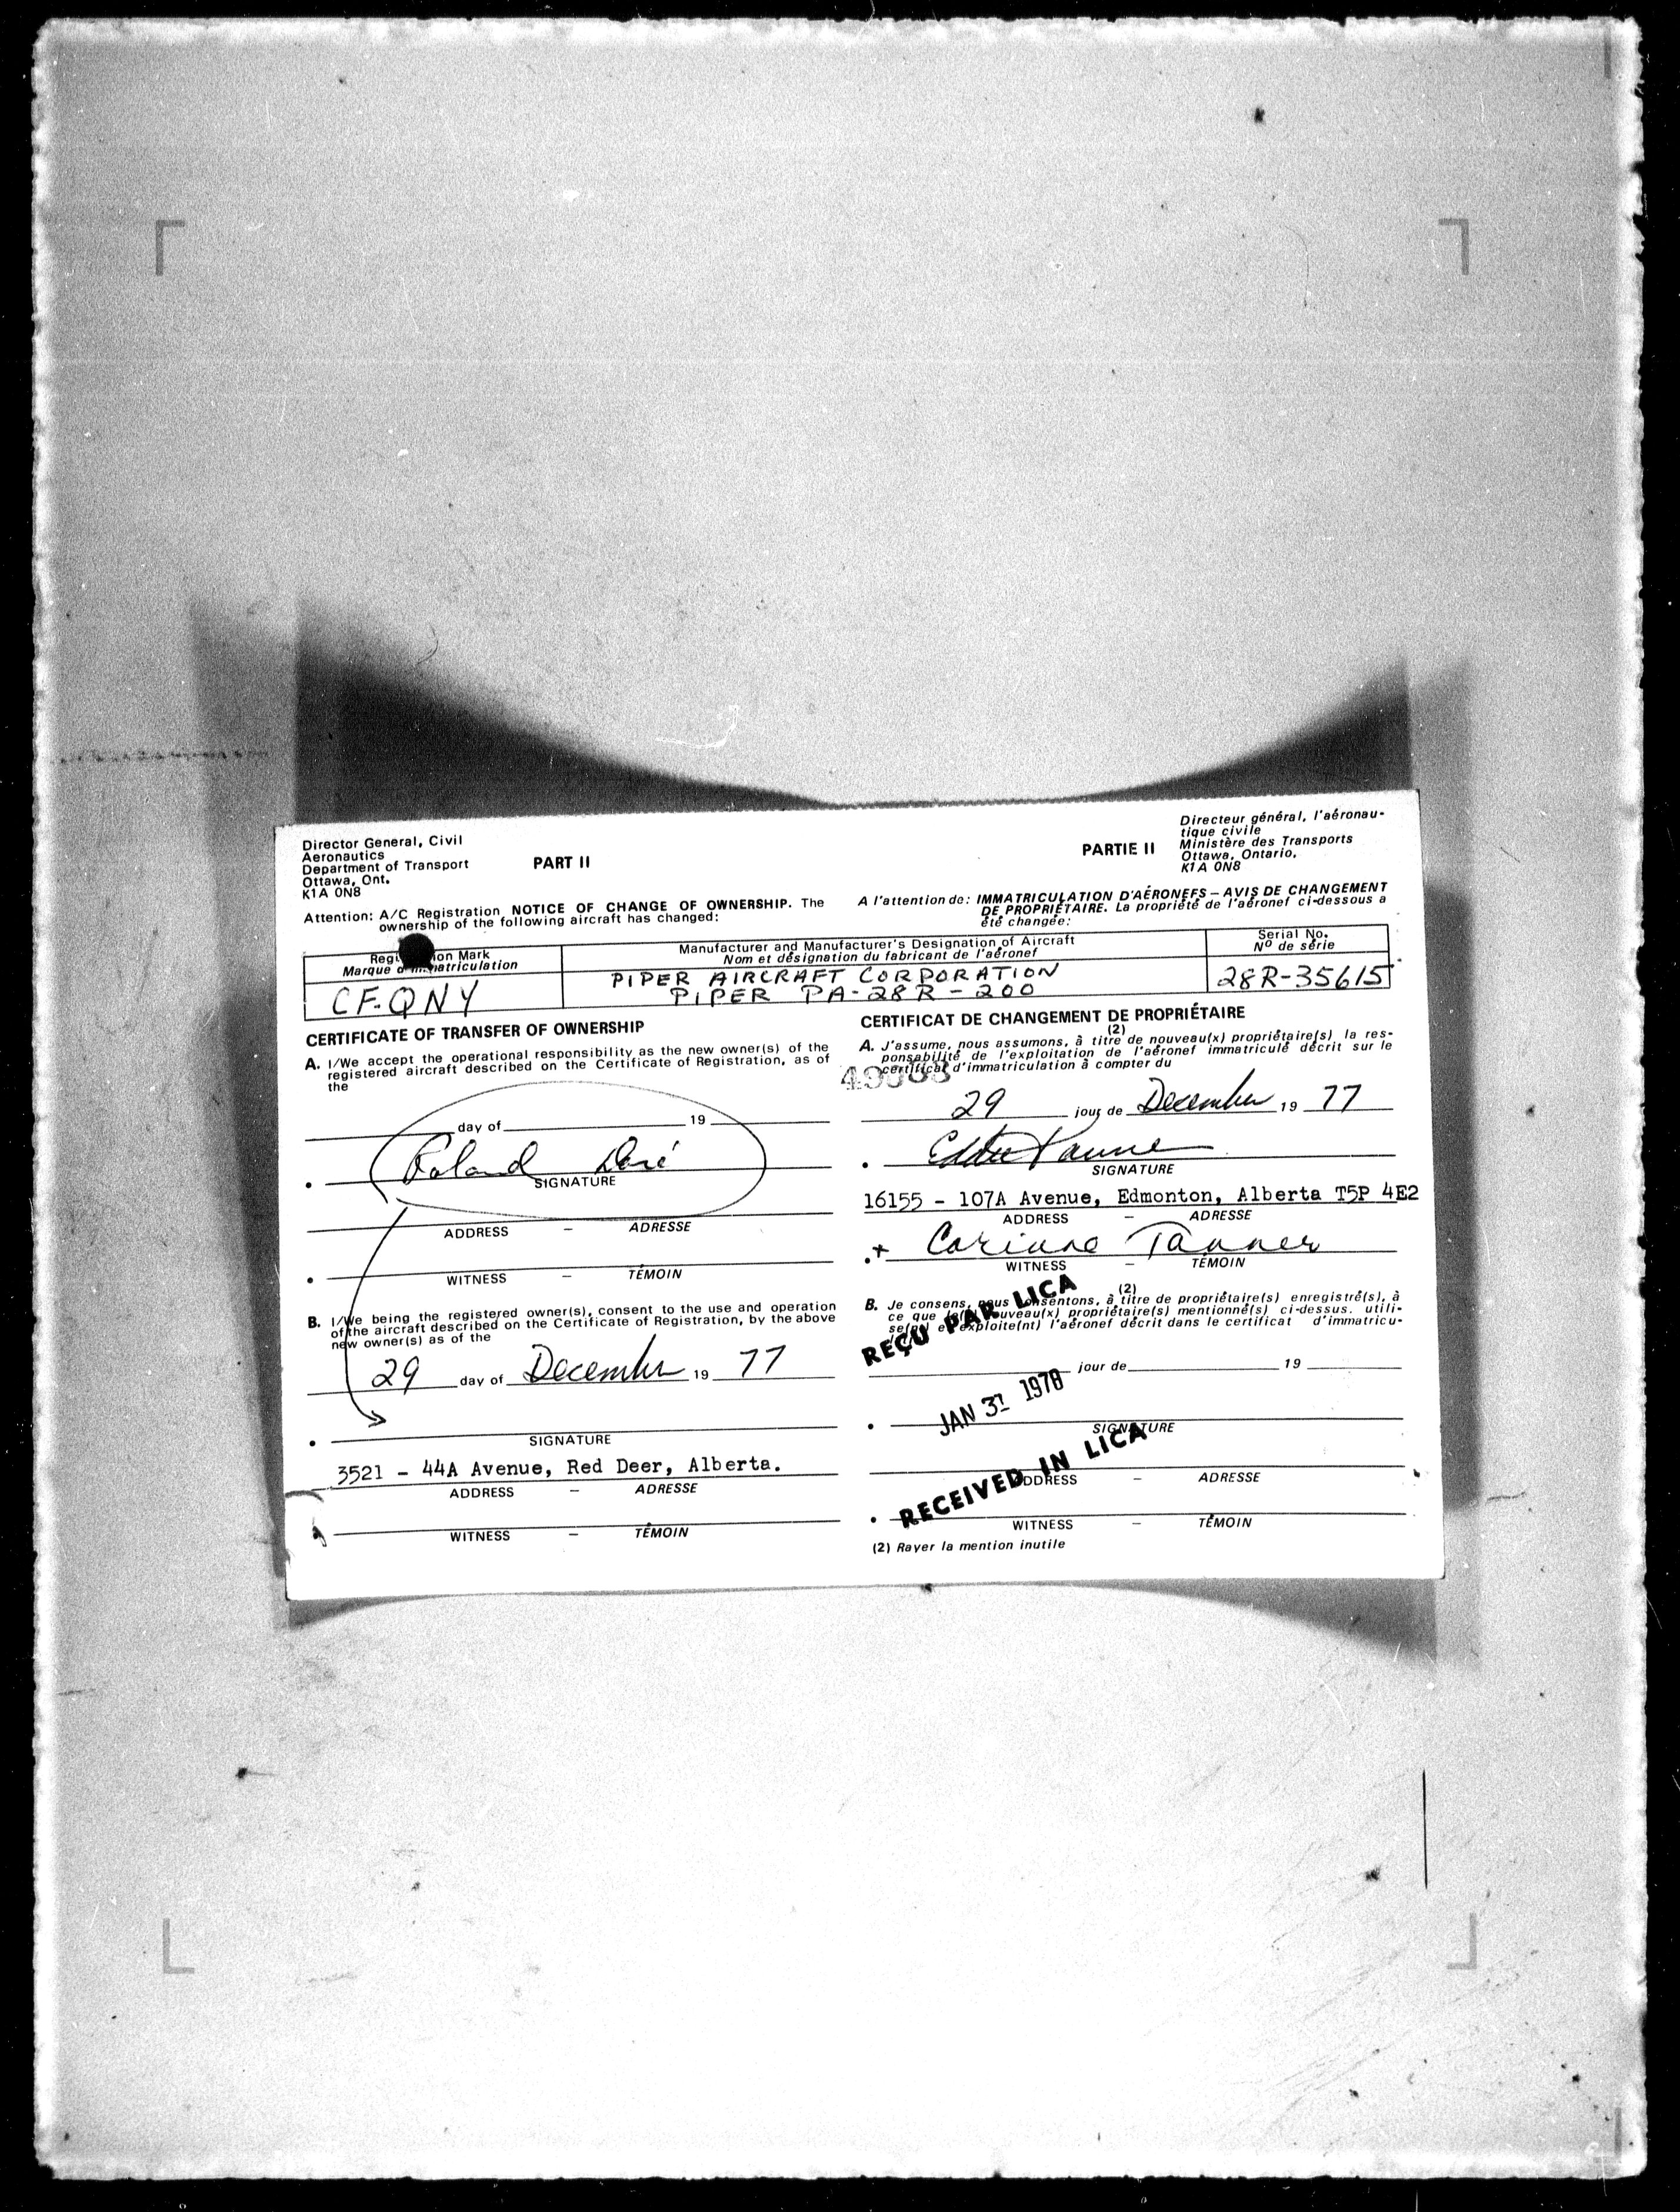 Director General, Civil
Aeronautics
Department of Transport
Ottawa, Ont.
K1A 0N8
PART II
PARTIE II
Directeur général, l'aéronau-
tique civile
Ministère des Transports
Ottawa, Ontario.
K1A 0N8
Attention: A/C Registration NOTICE OF CHANGE OF OWNERSHIP. The
ownership of the following aircraft has changed:
A l'attention de: IMMATRICULATION D'AÉRONEFS – AVIS DE CHANGEMENT
DE PROPRIÉTAIRE. La propriété de l'aéronef ci-dessous a
été changée:
Regi ion Mark
Marque d'immatriculation
CF-QNY
Manufacturer and Manufacturer's Designation of Aircraft
Nom et désignation du fabricant de l'aéronef
PIPER AIRCRAFT CORPORATION
PIPER PA-28R-200
Serial No.
Nº de série
28R-35615
CERTIFICATE OF TRANSFER OF OWNERSHIP
A. I/We accept the operational responsibility as the new owner(s) of the
registered aircraft described on the Certificate of Registration, as of
the
day of 19
Roland Doré
SIGNATURE
ADDRESS – ADRESSE
WITNESS – TÉMOIN
B. I/We being the registered owner(s), consent to the use and operation
of the aircraft described on the Certificate of Registration, by the above
new owner(s) as of the
29 day of December 19 77
SIGNATURE
3521 - 44A Avenue, Red Deer, Alberta.
ADDRESS – ADRESSE
WITNESS – TÉMOIN
CERTIFICAT DE CHANGEMENT DE PROPRIÉTAIRE
(2)
A. J'assume, nous assumons, à titre de nouveau(x) propriétaire(s), la res-
ponsabilité de l'exploitation de l'aéronef immatriculé décrit sur le
certificat d'immatriculation à compter du
29 jour de December 19 77
SIGNATURE
16155 - 107A Avenue, Edmonton, Alberta T5P 4E2
ADDRESS – ADRESSE
+ Corinne Tanner
WITNESS – TÉMOIN
(2)
B. Je consens, nous consentons, à titre de propriétaire(s) enregistré(s), à
ce que le(s) nouveau(x) propriétaire(s) mentionné(s) ci-dessus, utili-
se(nt) et exploite(nt) l'aéronef décrit dans le certificat d'immatricu-
REÇU PAR LICA
jour de 19
JAN 31 1978
SIGNATURE
RECEIVED IN LICA
ADDRESS – ADRESSE
WITNESS – TÉMOIN
(2) Rayer la mention inutile